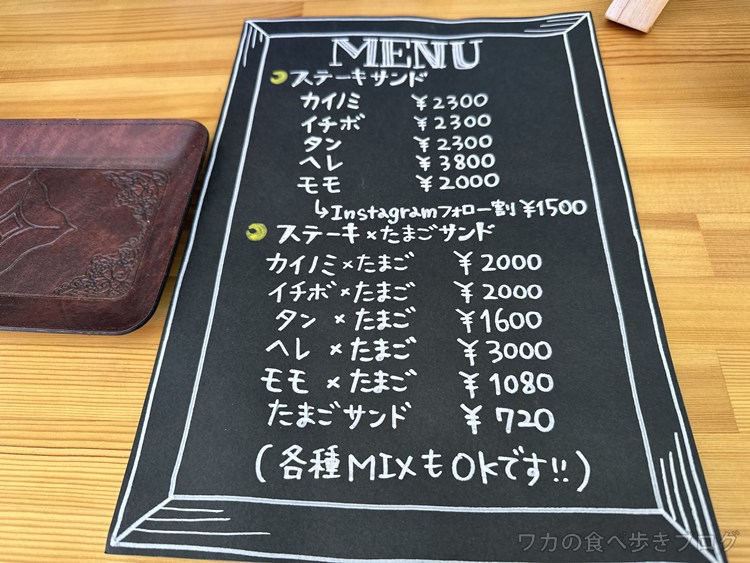 MENU
ステーキサンド
カイノミ ¥2300
イチボ ¥2300
タン ¥2300
ヘレ ¥3800
モモ ¥2000
↳Instagramフォロー割 ¥1500
ステーキ×たまごサンド
カイノミ×たまご ¥2000
イチボ×たまご ¥2000
タン ×たまご ¥1600
ヘレ ×たまご ¥3000
モモ ×たまご ¥1080
たまごサンド ¥720
(各種MIXもOKです!!)
ワカの食べ歩きブログ